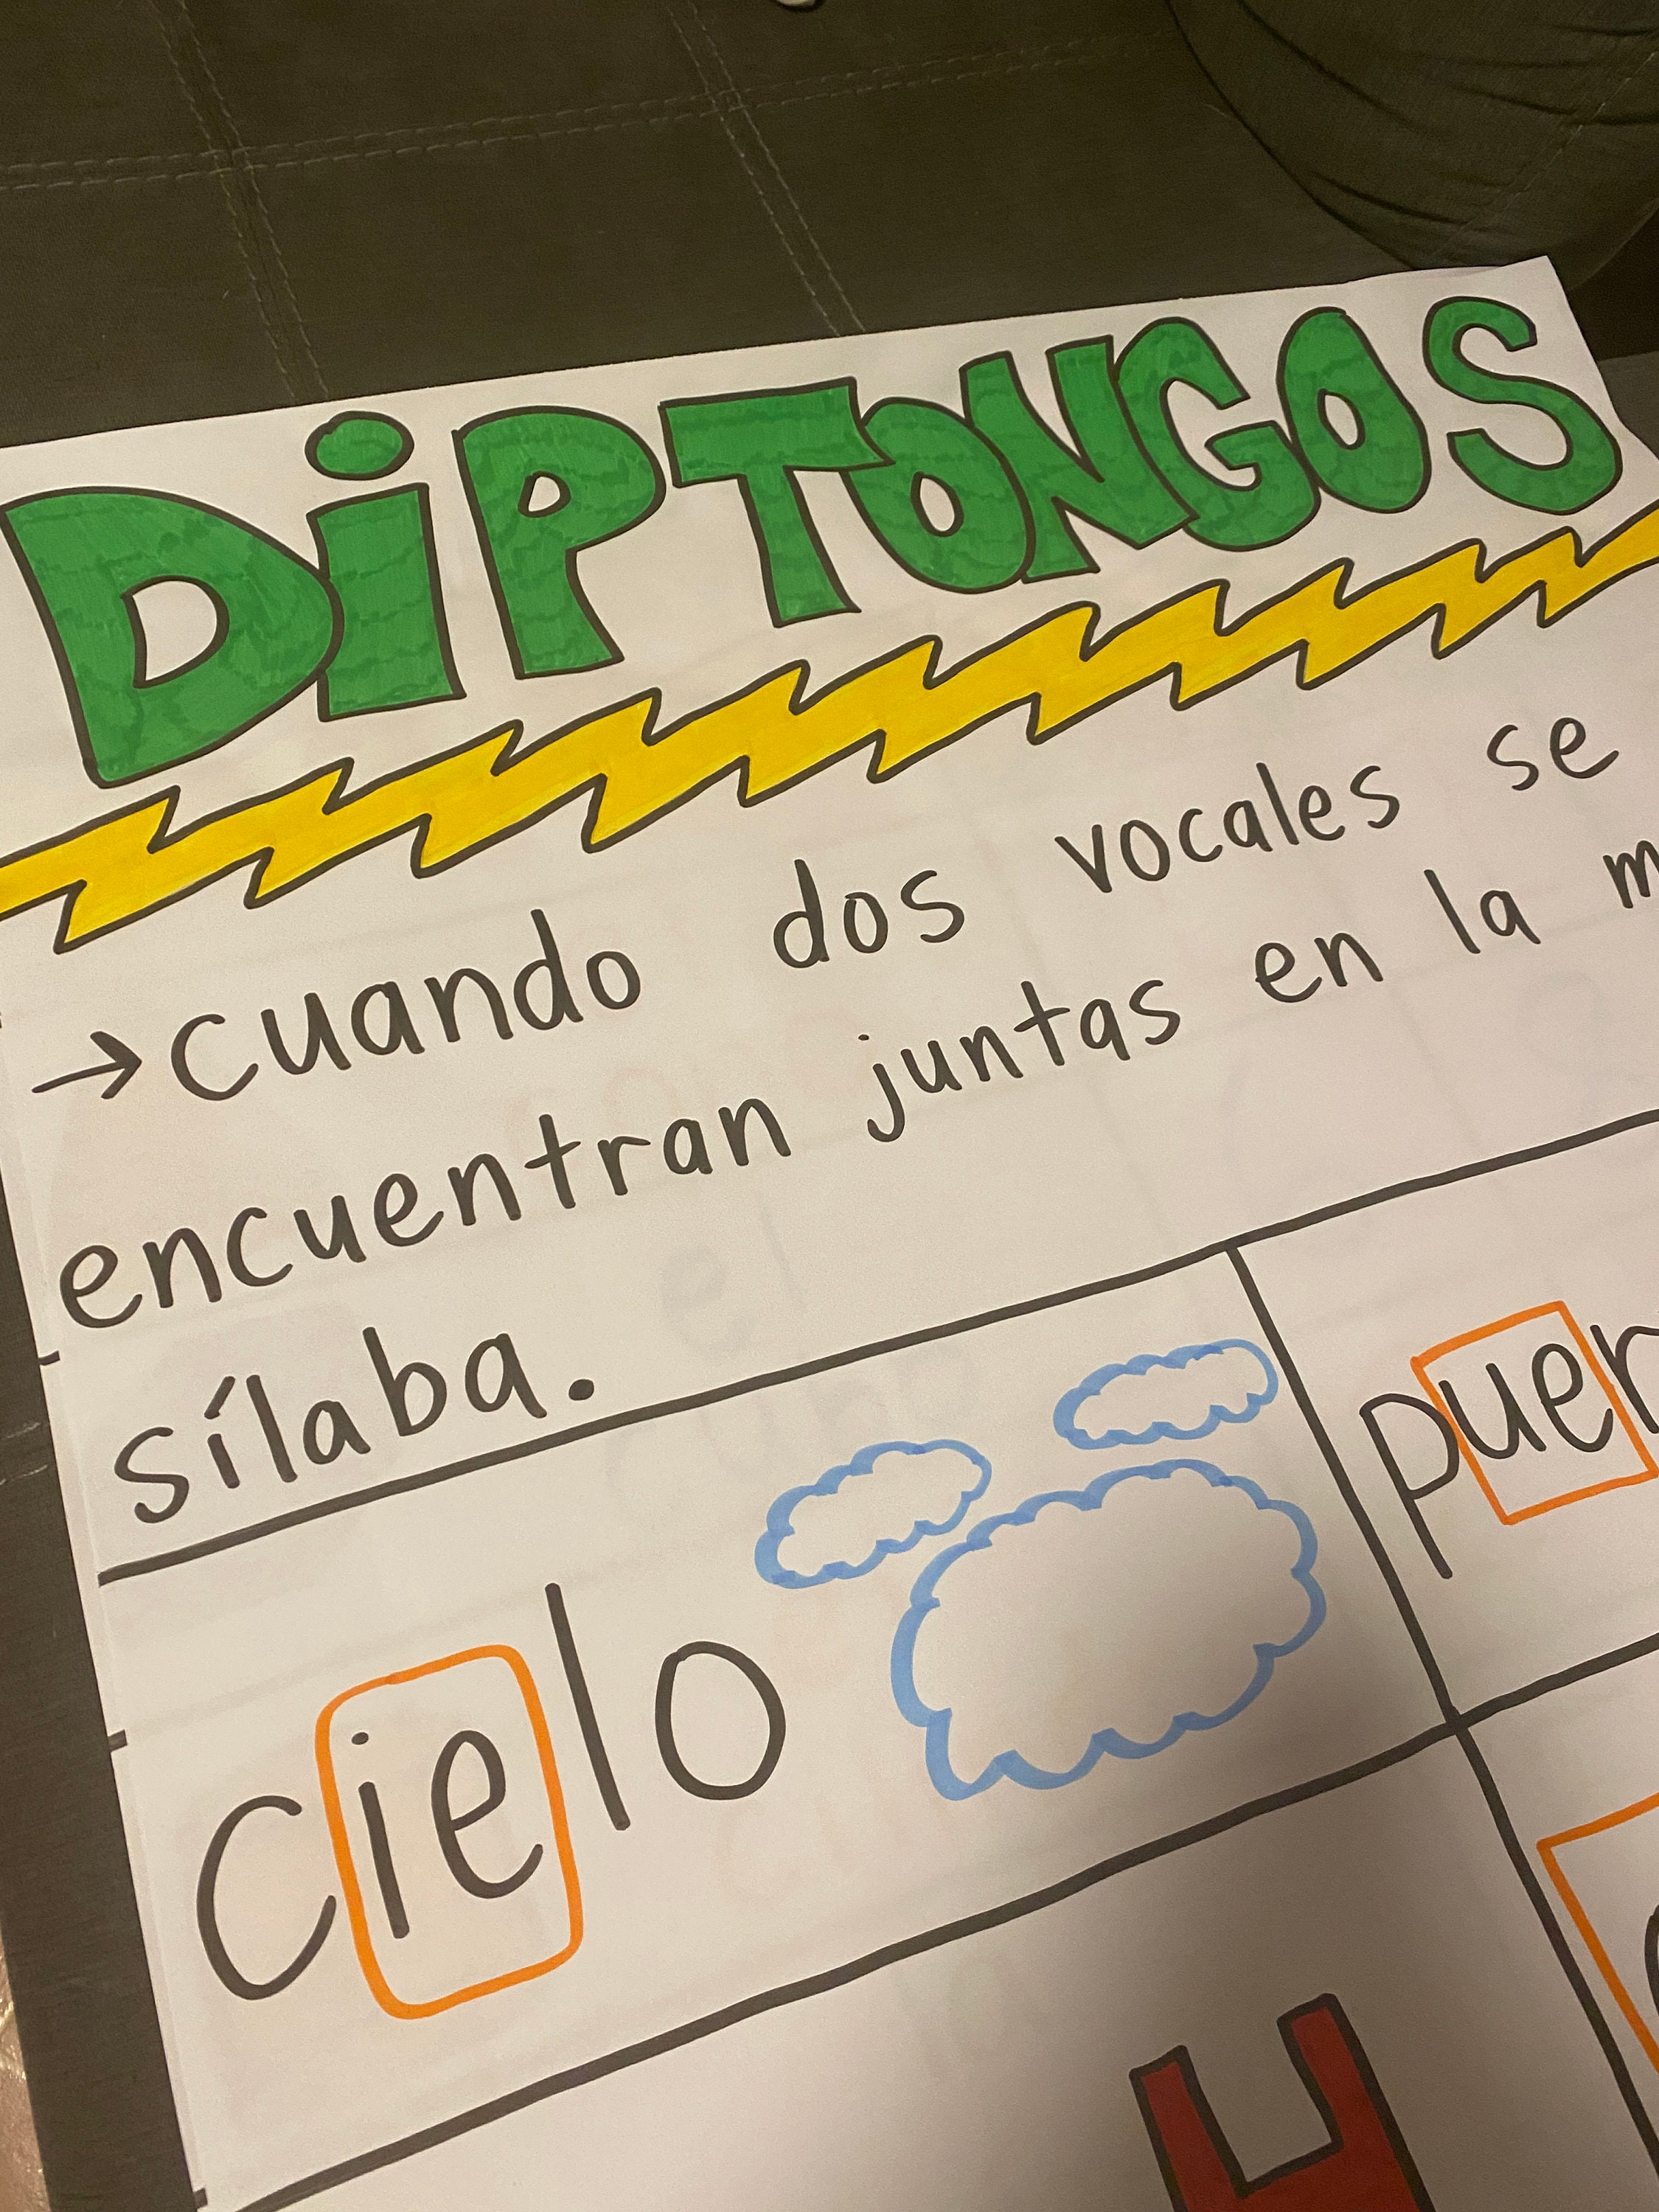 DiPTONGOS
→cuando dos vocales se
encuentran juntas en la
sílaba.
cielo